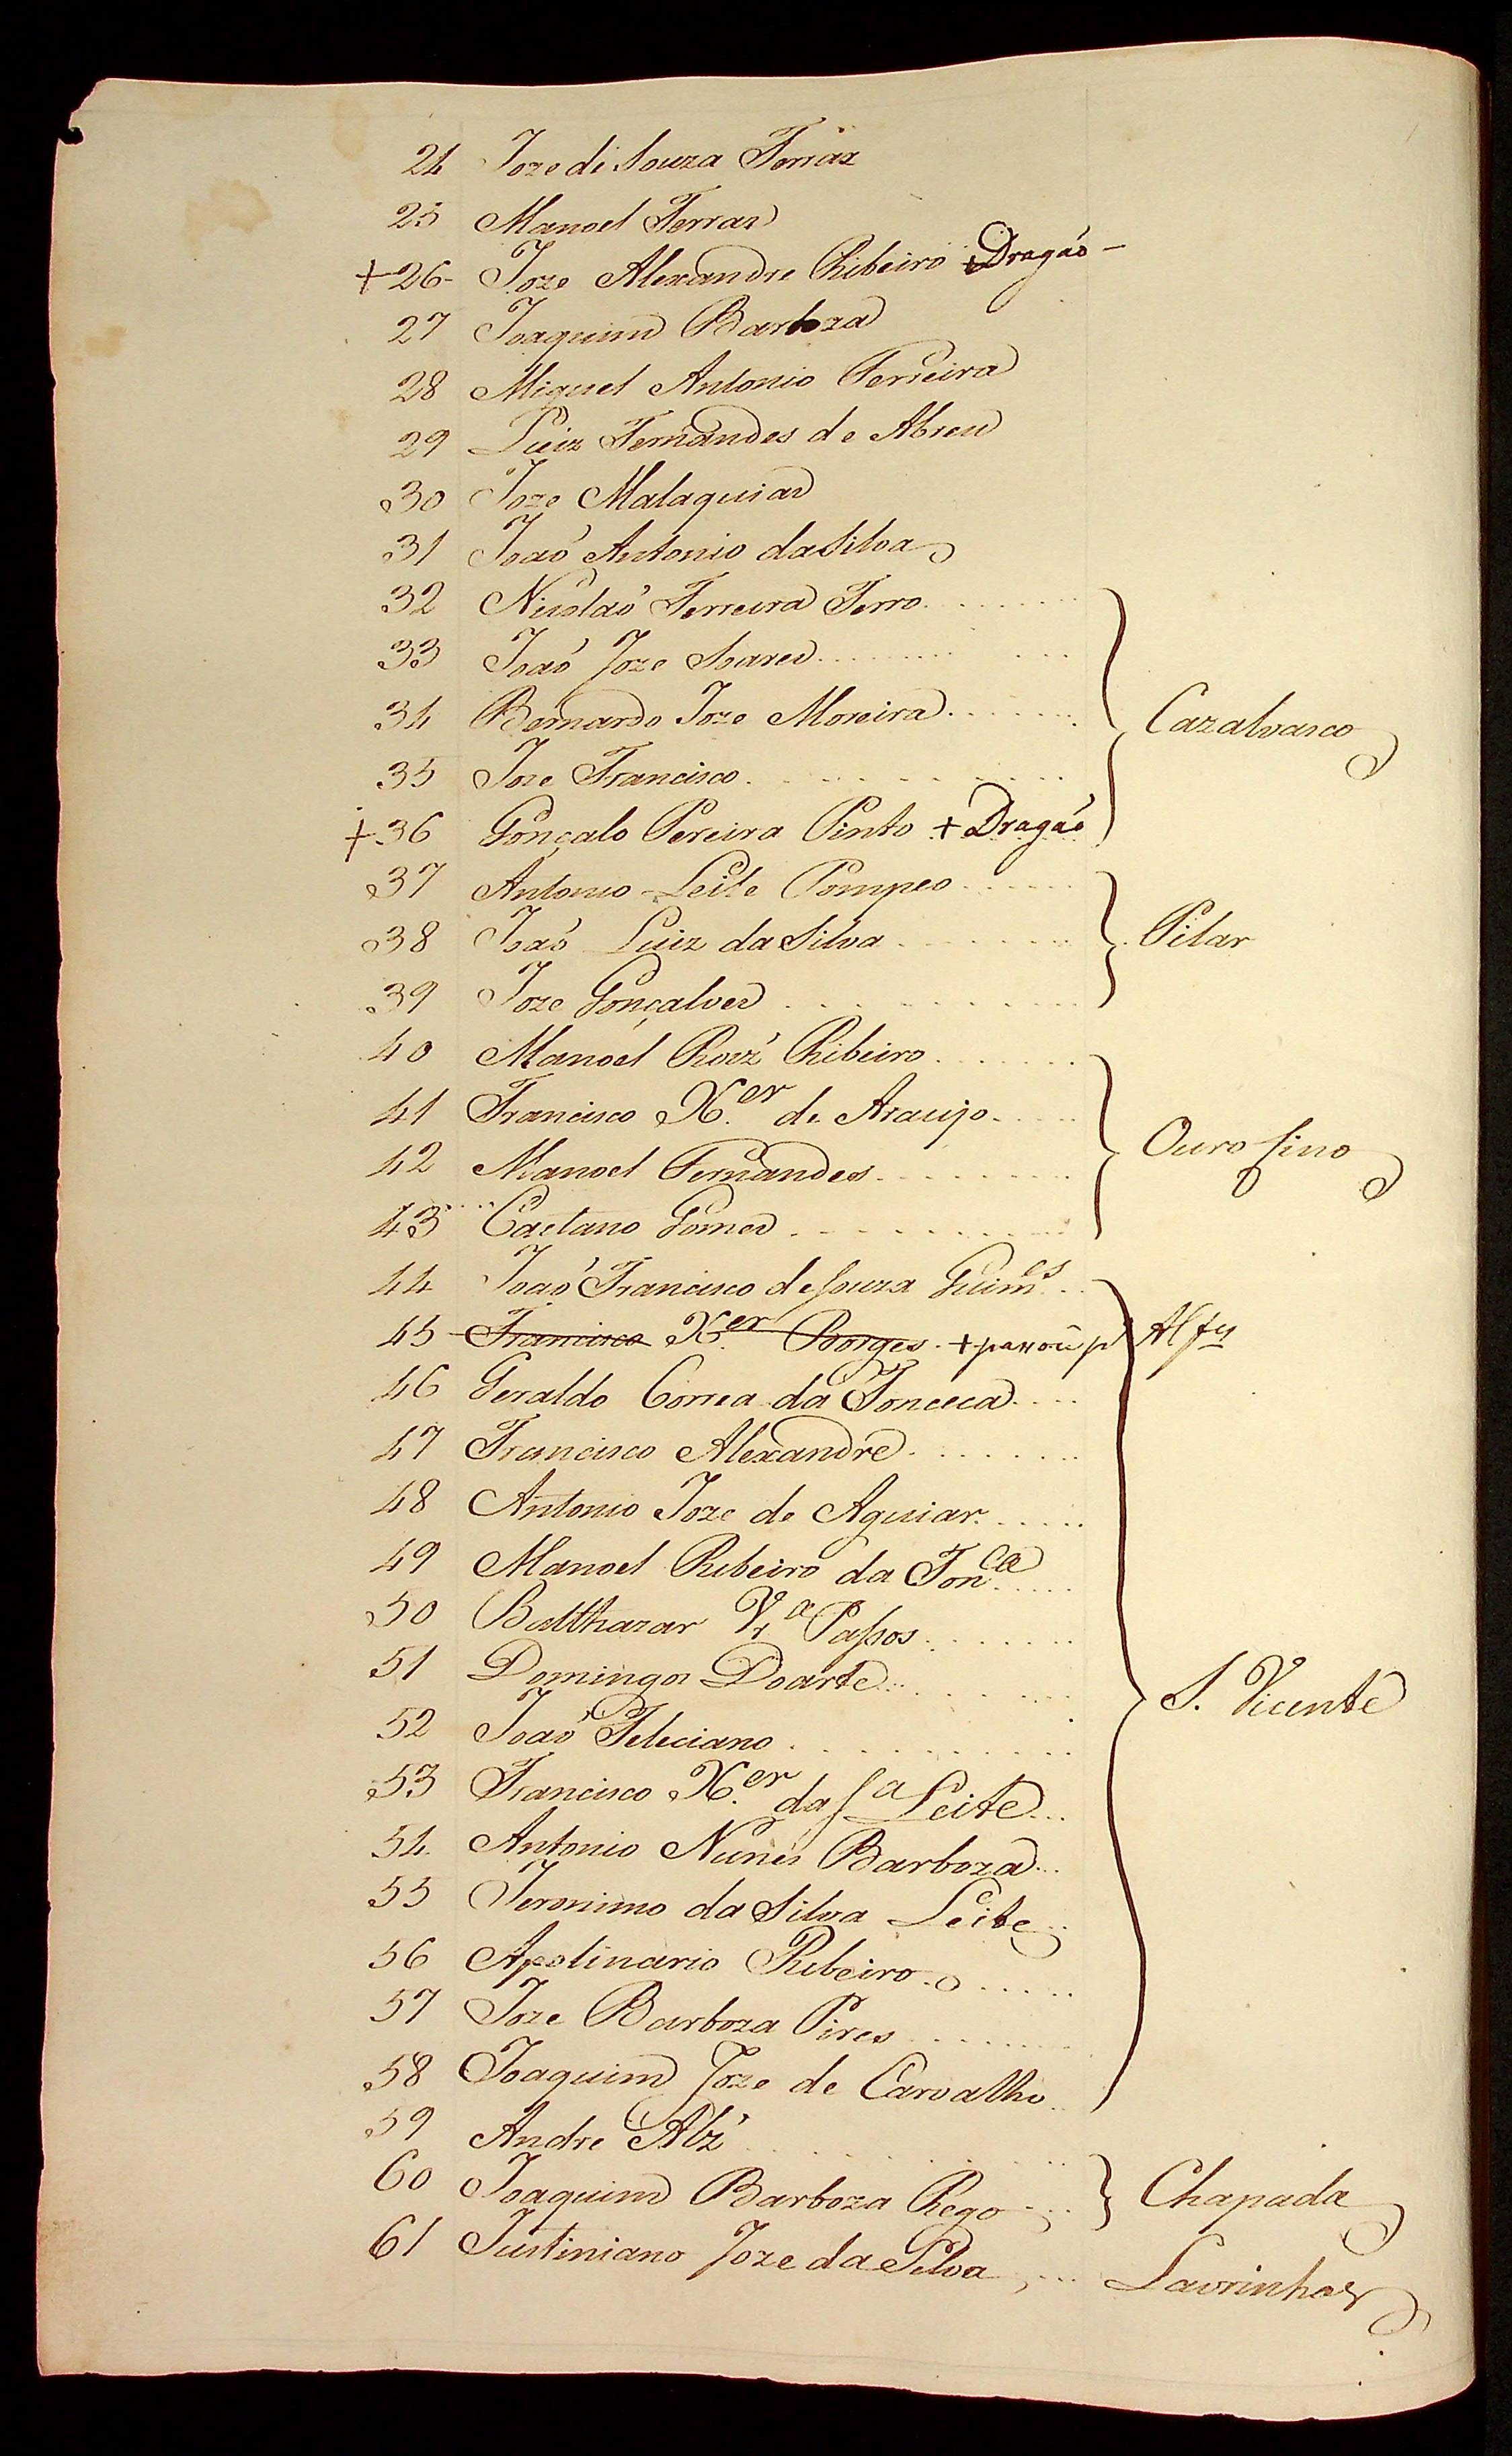 24 Joze de Souza Ferráz
25 Manoel Ferraz
+26- Joze Alexandre Ribeiro +Dragáo -
27 Joaquim Barboza
28 Miguel Antonio Ferreira
29 Luiz Fernandes de Abreu
30 Joze Malaquias
31 Joaó Antonio da Silva
32 Nicoláo Ferreira Ferro
33 Joaó Joze Soares
34 Bernardo Joze Moreira
Cazalvasco
35 Joze Francisco
+36 Gonçalo Pereira Pinto + Dragáo
37 Antonio Leite Pompeo
38 Joaó Luiz da Silva
Pilar
39 Joze Gonçalves
40 Manoel Roiz Ribeiro
41 Francisco X.er de Araujo
Ouro fino
42 Manoel Fernandes
43 Caetano Gomes
44 Joaó Francisco de Souza Guim.es
45 Francisco X.er Borges + passou p Alfs
46 Geraldo Correa da Fonceca
47 Francisco Alexandre
48 Antonio Joze de Aguiar
49 Manoel Ribeiro da Fon.ca
50 Balthazar Vr.a Passos
51 Domingos Doarte
S. Vicente
52 Joaó Feleciano
53 Francisco X.er da S.a Leite
54 Antonio Nunes Barboza
55 Jeronimo da Silva Leite
56 Apolinario Ribeiro
57 Joze Barboza Pires
58 Joaquim Joze de Carvalho
59 Andre Alz'
60 Joaquim Barboza Rego
Chapada
61 Justiniano Joze da Silva
Lavrinhas